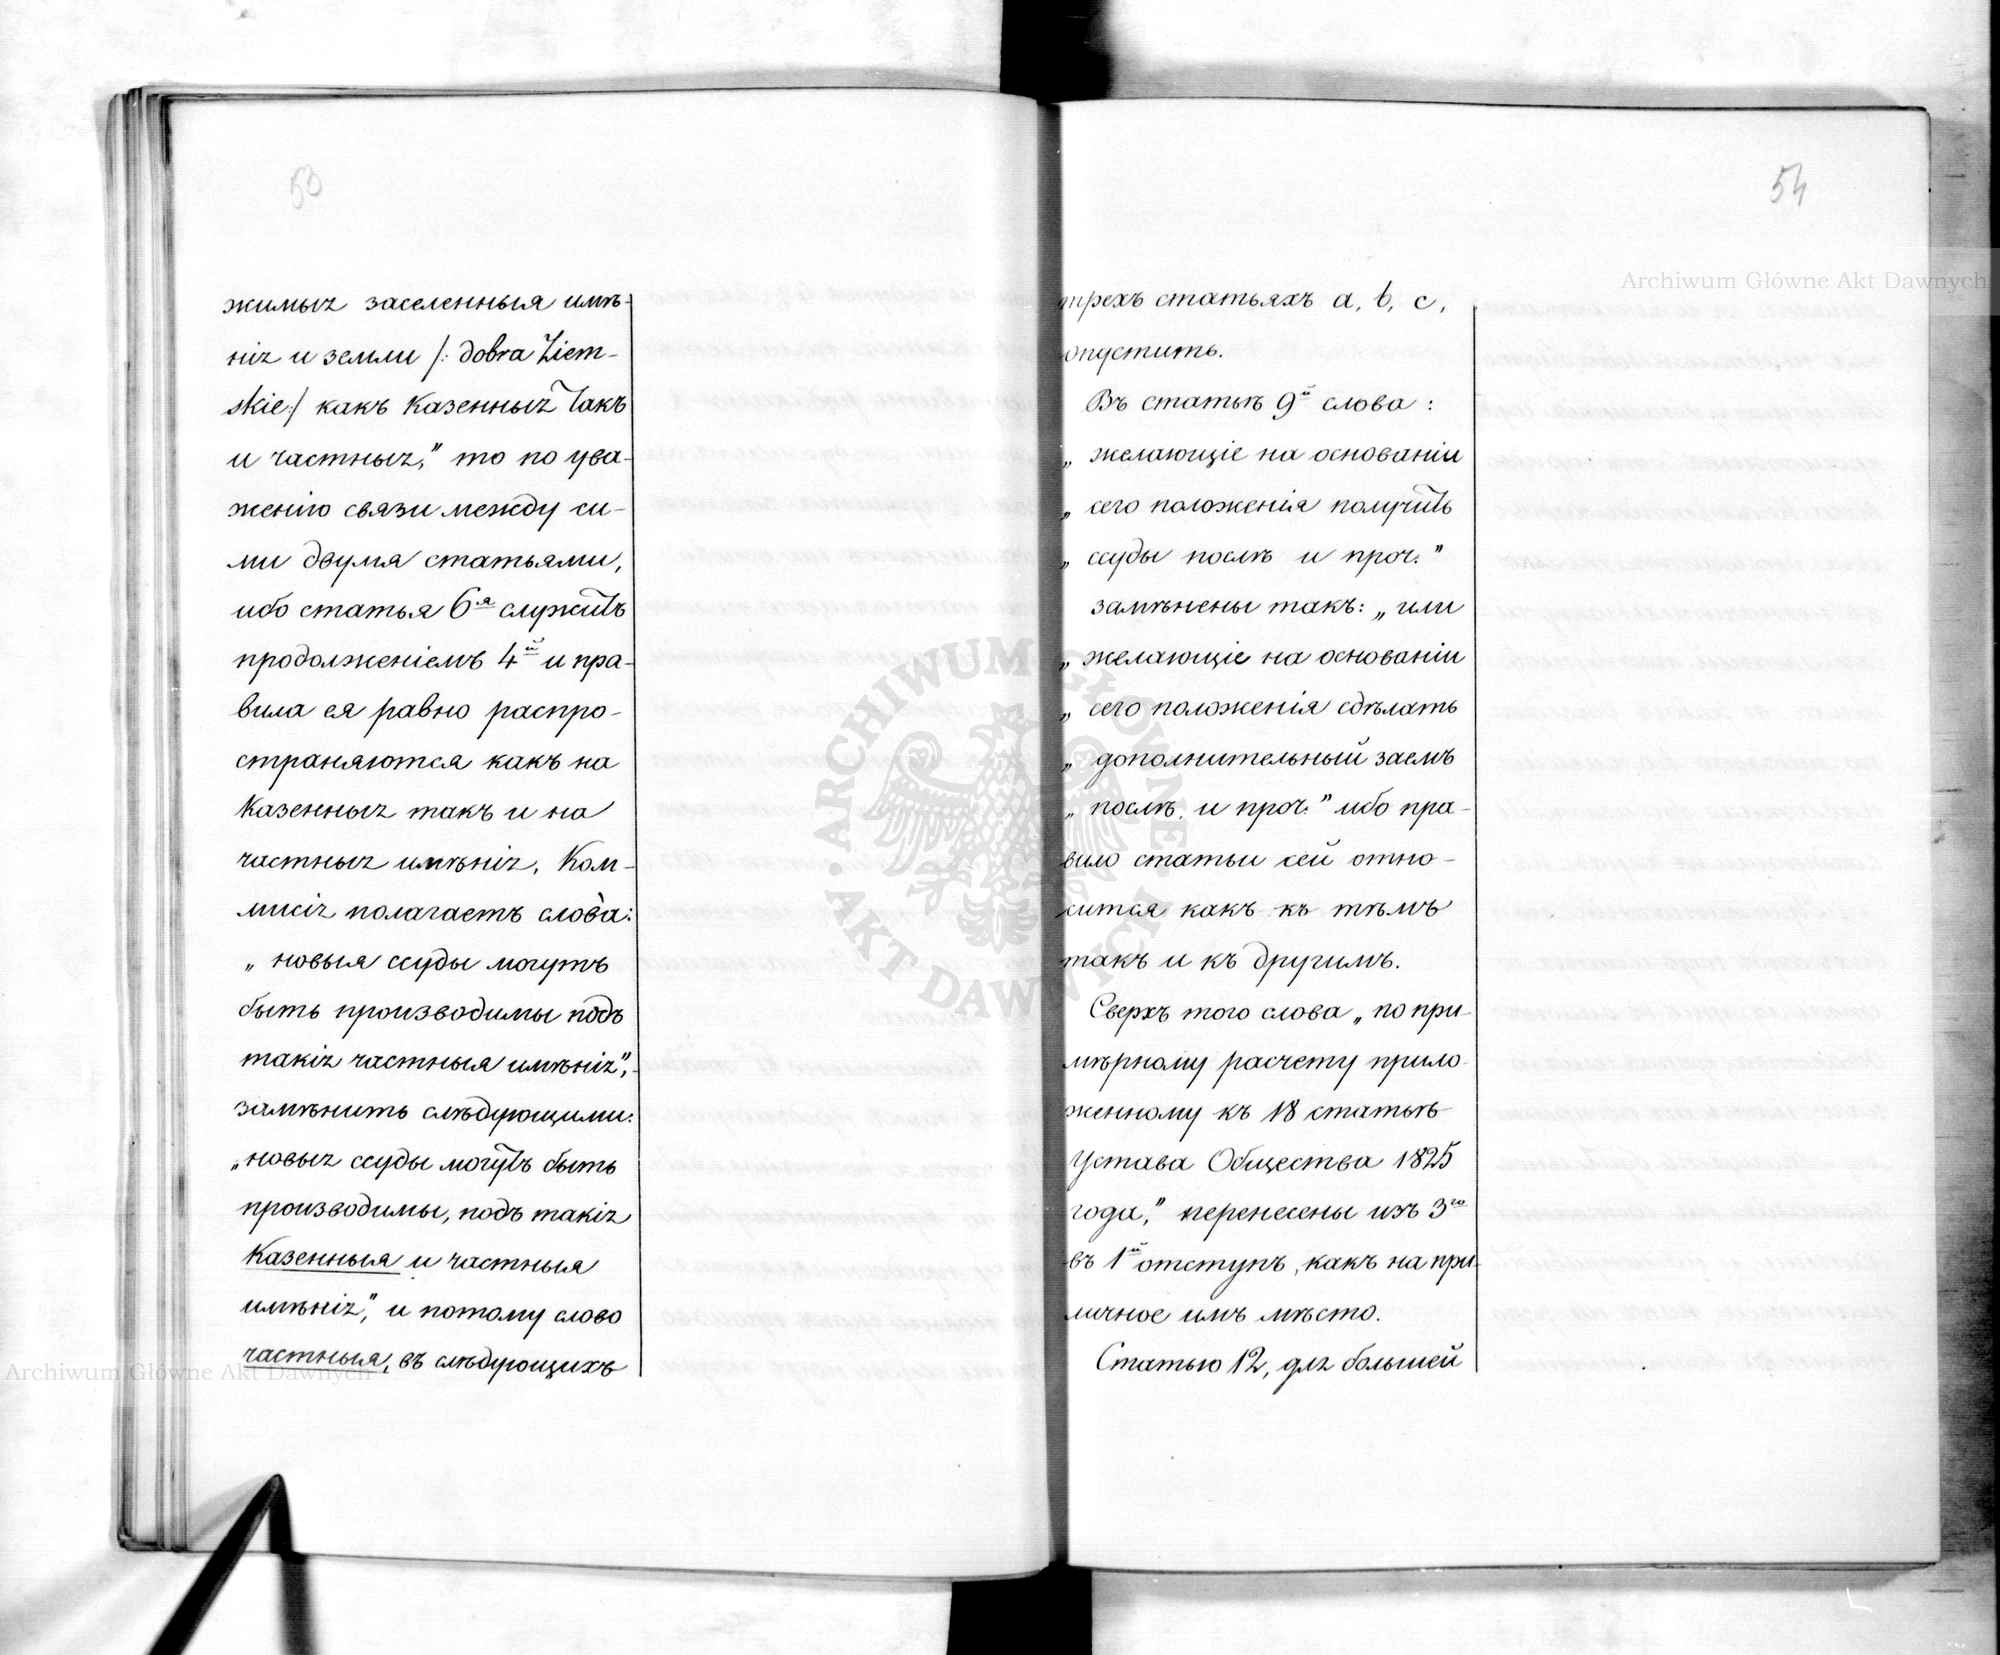 53
жимыя заселенныя имѣ-
нія и земли /: dobra Ziem-
skie:/ какъ казенныя такъ
и частныя," то по ува-
женію связи между си-
ми двумя статьями,
ибо статья 6я служитъ
продолженіемъ 4й и пра-
вила ея равно распро-
страняются какъ на
казенныя такъ и на
частныя имѣнія, Ком-
мисія полагаетъ слова:
„новыя ссуды могутъ
быть производимы подъ
такія частныя имѣнія",-
замѣнить слѣдующими:
„новыя ссуды могутъ быть
производимы, подъ такія
казенныя и частныя
имѣнія", и потому слово
частныя, въ слѣдующихъ
54
трехъ статьяхъ a, b, c,
опустить.
Въ статьѣ 9й слова:
„ желающіе на основаніи
„ сего положенія получить
„ ссуды послѣ и проч."
замѣнены такъ: „или
„ желающіе на основаніи
„ сего положенія сдѣлать
„ дополнительный заемъ
„ послѣ, и проч." ибо пра-
вило статьи сей отно-
сится какъ къ тѣмъ
такъ и къ другимъ.
Сверхъ того слова „по при-
мѣрному расчету прило-
женному къ 18 статьѣ
Устава Общества 1825
года," перенесены изъ 3го
въ 1й отступъ, какъ на при-
личное имъ мѣсто.
Статью 12, для большей
Archiwum Główne Akt Dawnych
ARCHIWUM GŁÓWNE · AKT DAWNYCH ·
Archiwum Główne Akt Dawnych